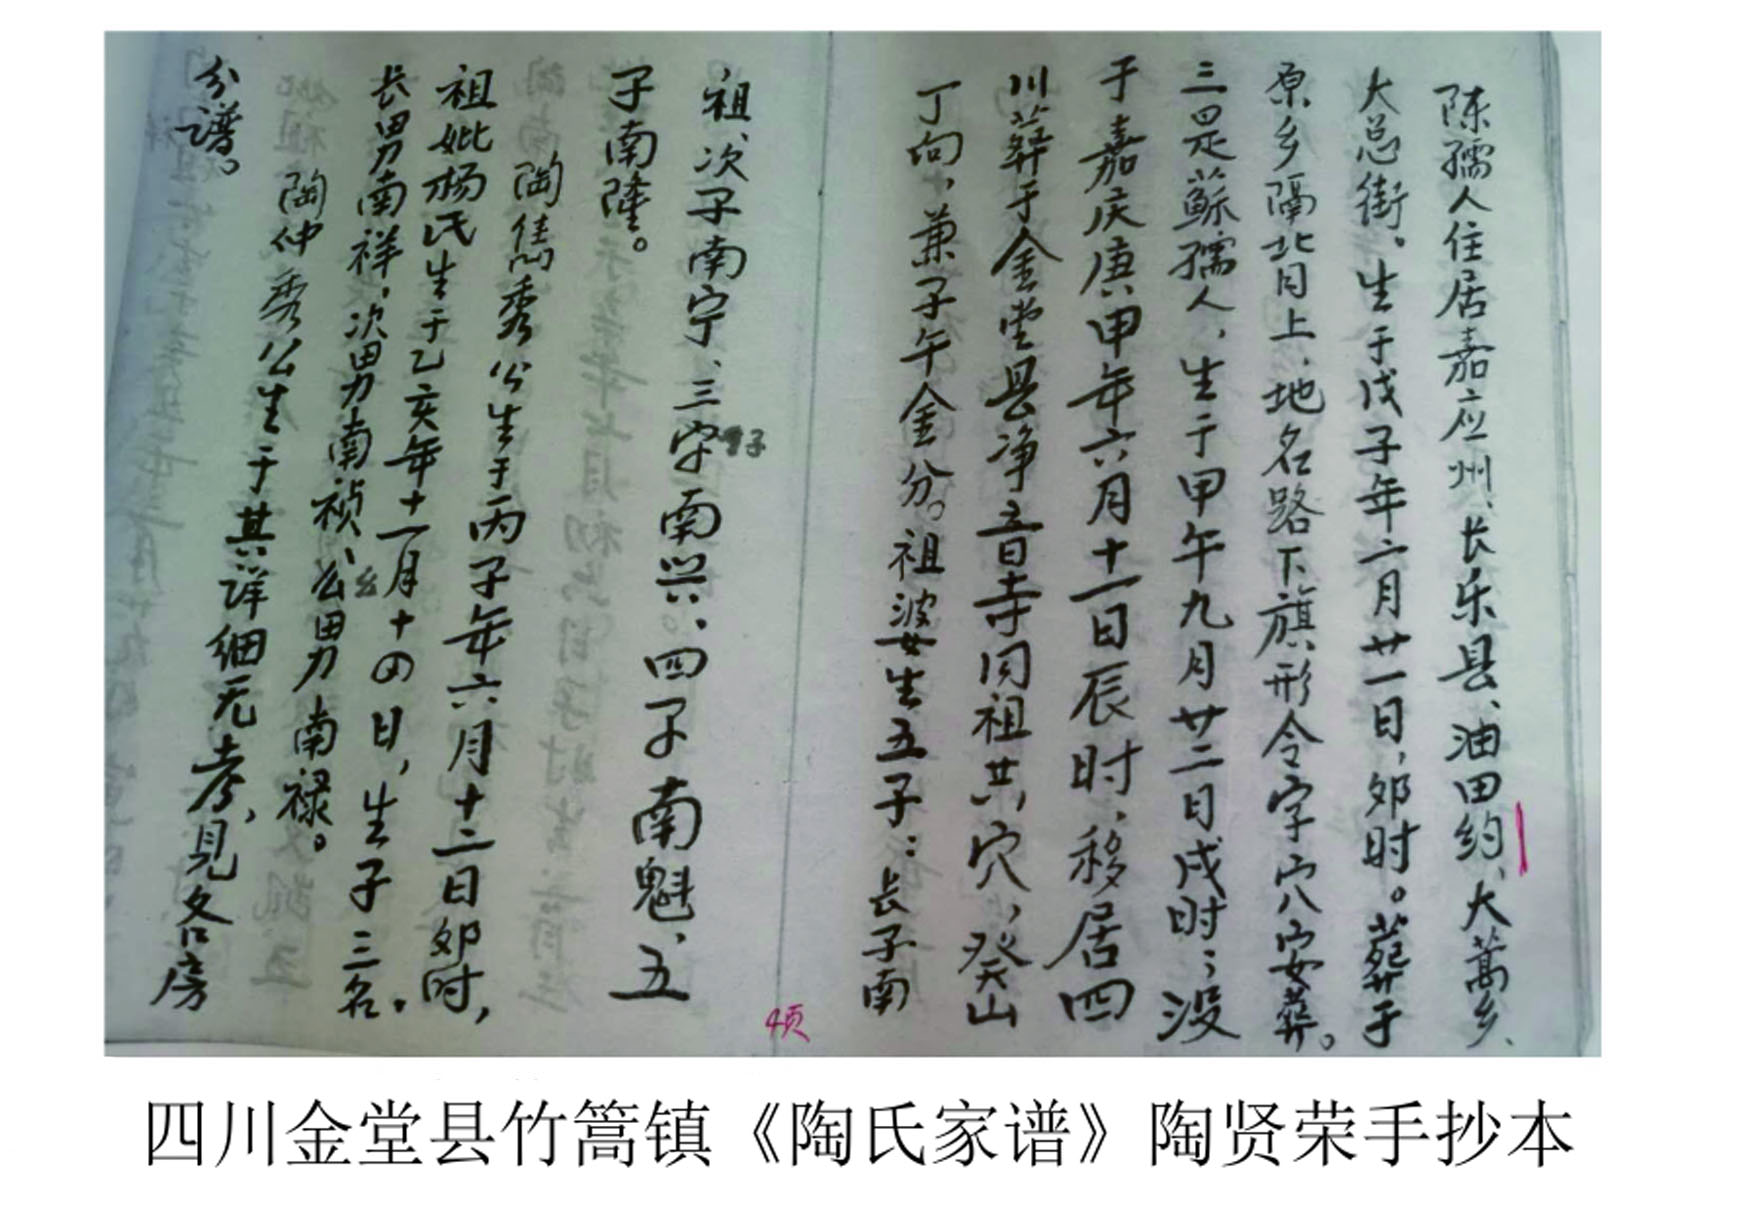 陈孺人住居嘉应州、长乐县、油田约、大蒿乡、
大总街。生于戊子年六月廿一日，卯时。葬于
原乡隔背月上，地名路下旗形令字穴安葬。
三是蘇孺人，生于甲午九月廿二日戌时；没
于嘉庆庚申年六月十一日辰时，移居四
川葬于金堂县净音寺同祖共穴，癸山
丁向，兼子午金分。祖婆生五子：长子南
祖、次子南宁、三字子南兴、四子南魁、五
子南隆。
陶儁秀公生于丙子年六月十二日卯时，
祖妣杨氏生于乙亥年十一月十四日，生子三名。
长男南祥，次男南祯、幺男南禄。
陶仲秀公生于其详细无考，见各房
分谱。
4页
四川金堂县竹篙镇《陶氏家谱》陶贤荣手抄本